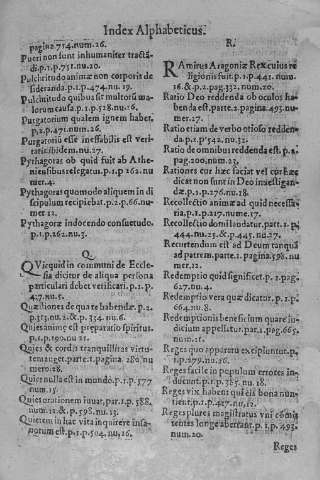 Index Alphabeticus.
pagina 714. num. 26.
Pueri non sunt inhumaniter tractã-
di. p. 1. p. 751. nu. 20.
Pulchritudo animæ non corporis de
sideranda. p. 1. p. 474. nu. 19.
Pulchritudo quibus sit malorũ ma-
lorum causa. p. 1. p. 528. nu. 16.
Purgatorium qualem ignem habet,
p. 2. p. 471. num. 26.
Purgatorio esse ineffabilis est veri-
tatis ibidem. nu. 27.
Pythagoras ob quid fuit ab Athe-
niensibus relegatus. p. 1. p. 262. nu
mer. 4.
Pythagoras quomodo aliquem in di
scipulum recipiebat. p. 2. p. 66. nu-
mer. 12.
Pythagoræ indocendo consuetudo.
p. 1. p. 262. nu. 3.
Q
QVicquid in communi de Eccle-
sia dicitur de aliqua persona
particulari debet verificari. p. 1. p.
417. nu. 5.
Quæstiones de qua te habendæ. p. 2.
p. 313. nu. 2. & p. 334. nu. 6.
Quies animę est preparatio spiritus.
p. 1. p. 190. nu. 21.
Quies & cordis tranquillitas virtu-
tem auget. parte. 1. pagina. 280. nu
mero. 28.
Quies nulla est in mundo. p. 1. p. 577
num. 15.
Quies orationem iuuat, par. 1. p. 588.
num. 12. & p. 598. nu. 23.
Quietem in hac vita inquirere insa-
potum est. p. 1. p. 504. nu. 16.
R.
RAmirus Aragoniæ Rex cuius re
ligionis fuit. p. 1. p. 441. num.
16. & p. 2. pag. 332. num. 20.
Ratio Deo reddenda ob oculos ha-
benda est. parte. 2. pagina. 495. nu-
mer. 27.
Ratio etiam de verbo otioso redden
da p. 1. p. 542. nu. 32.
Ratio de omnibus reddenda est. p. 2.
pag. 200. num. 23.
Rationes cur hæc faciat vel cur hæc
dicat non sunt in Deo inuestigan-
dæ. p. 1. p. 276. nu. 18.
Recollectio animæ ad quid necessa-
ria. p. 1. p. 217. nume. 17.
Recollectio domi laudatur. part. 1. p.
444. nu. 25. & p. 445. nu. 27.
Recurrendum est ad Deum tanquã
ad patrem. parte. 1. pagina. 598. nu
mer. 12.
Redemptio quid significet. p. 2. pag.
627. nu. 4.
Redemptio vera quæ dicatur. p. 1. p.
664. nu. 8.
Redemptionis beneficium quare iu-
dicium appellatur. par. 1. pag. 665.
num. 11.
Reges quo apparatu excipiuntur. p.
1. p. 279. nu. 16.
Reges facile in populum errores in-
ducunt. p. 1. p. 385. nu. 18.
Reges vix habent qui eis bona nun-
tient. p. 1. p. 427. nu. 12.
Reges plures magistratus vni cómit
tentes longe aberrant. p. 1. p. 493.
num. 20.
Reges